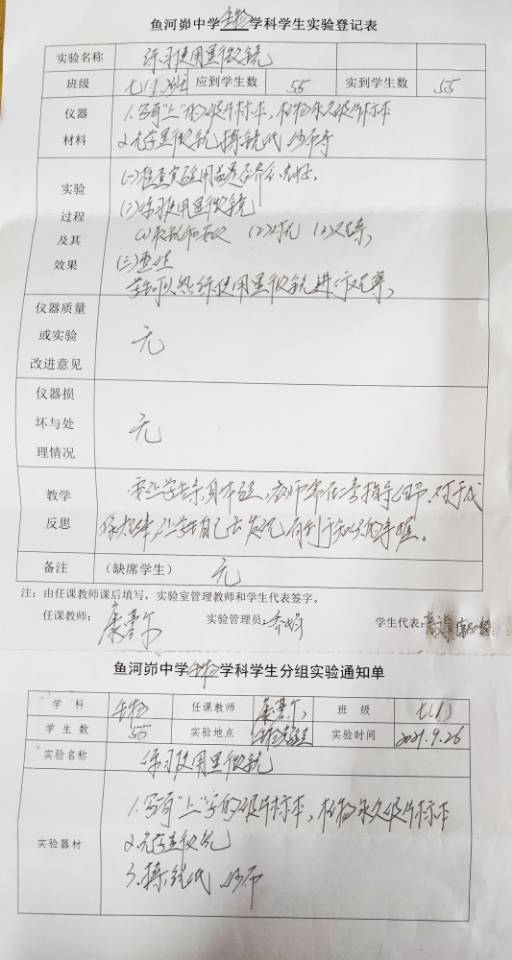 鱼河峁中学生物学科学生实验登记表
实验名称 练习使用显微镜
班级 七(1)班 应到学生数 55 实到学生数 55
仪器材料 1.写有"上"字的玻片标本,植物永久玻片标本
2.光学显微镜 擦镜纸 纱布等
实验过程及其效果 (一)检查实验用品是否齐全、完好.
(二)练习使用显微镜
(1)取镜和安放 (2)对光 (3)观察,
(三)
学生可以熟练使用显微镜进行观察,
仪器质量或实验改进意见 无
仪器损坏与处理情况 无
教学反思 要让学生亲自体验,教师
让学生自己去发现 有利于知识的掌握.
备注 (缺席学生) 无
注:由任课教师课后填写,实验室管理教师和学生代表签字。
任课教师: 实验管理员: 学生代表:
鱼河峁中学生物学科学生分组实验通知单
学科 生物 任课教师 班级 七(1)
学生数 55 实验地点 生物实验室 实验时间 2021.9.26
实验名称 练习使用显微镜
实验器材 1.写有"上"字的玻片标本,植物永久玻片标本
2.光学显微镜
3.擦镜纸 纱布